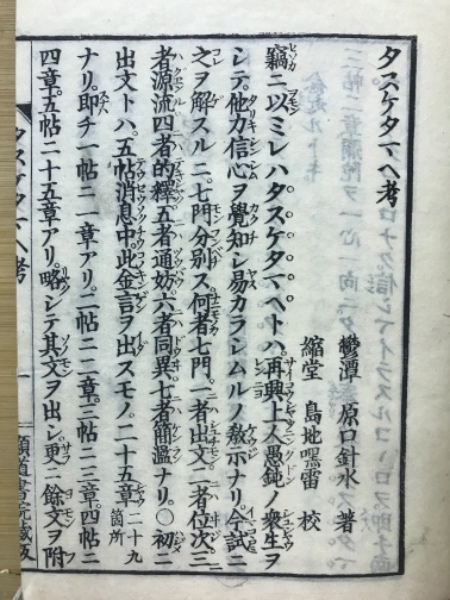 タスケタマヘ考
欝潭 原口針水 著
縮堂 島地嘿雷 校
竊ニ以ミレハタスケタマヘトハ。再興上人愚鈍ノ衆生ヲ
シテ。他力信心ヲ覺知シ易カラシムルノ敎示ナリ。今試ニ
之ヲ解スルニ。七門分別ス。何者七門。一者出文。二者位次。三
者源流。四者的釋。五者通妨。六者同異。七者簡濫ナリ。〇初ニ
出文トハ。五帖消息中。此金言ヲ出スモノ。二十五章二十九箇所
ナリ。即チ一帖ニ一章アリ。二帖ニ二章。三帖ニ三章。四帖ニ
四章。五帖ニ十五章アリ。略シテ其文ヲ出シ。更ニ餘文ヲ附
タスケタマヘ考
一
顯道書院藏版